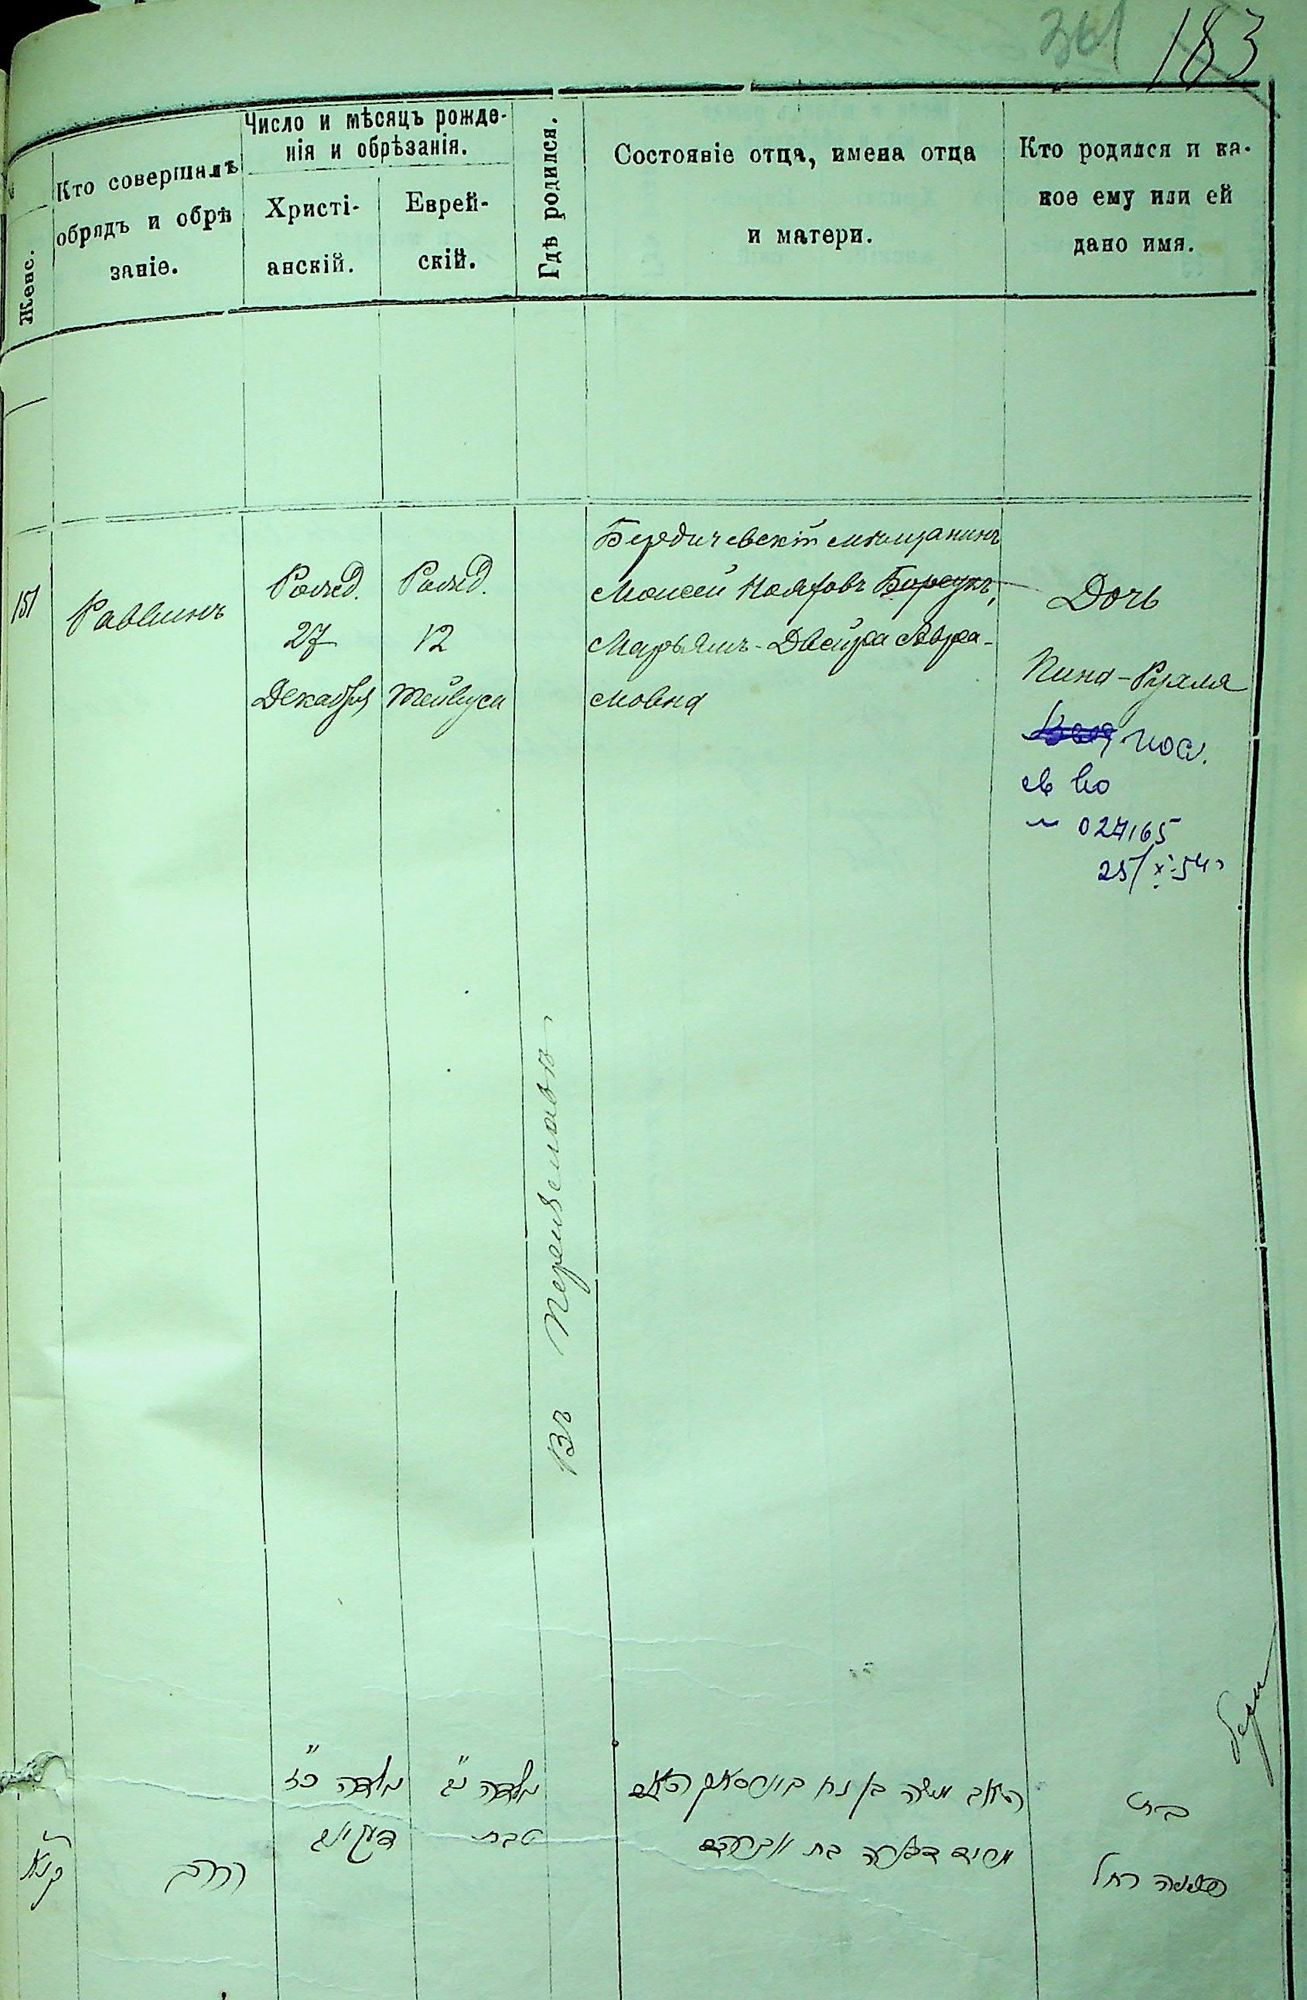 361 183
Женс.
Кто совершалъ
обрядъ и обрѣ
заніе.
Число и мѣсяцъ рожде-
нія и обрѣзанія.
Христі-
анскій.
Еврей-
скій.
Гдѣ родился.
Состояніе отца, имена отца
и матери.
Кто родился и ка-
кое ему или ей
дано имя.
151
Раввинъ
Рожд.
27
Декабря
Рожд.
12
Тейвуса
Въ Переяславѣ
Бердичевскій мѣщанинъ
Моисей Нояховъ Борсукъ,
Марьямъ-Двейра Авра-
мовна
Дочь
Пина-Рухля
пос.
св во
027165
25/X-54г
קנא
הרב
נולדה כ"ז
דעקאב
נולדה
טבת
האב משה בן נח
מרים דבורה בת אברהם
בת
רחל